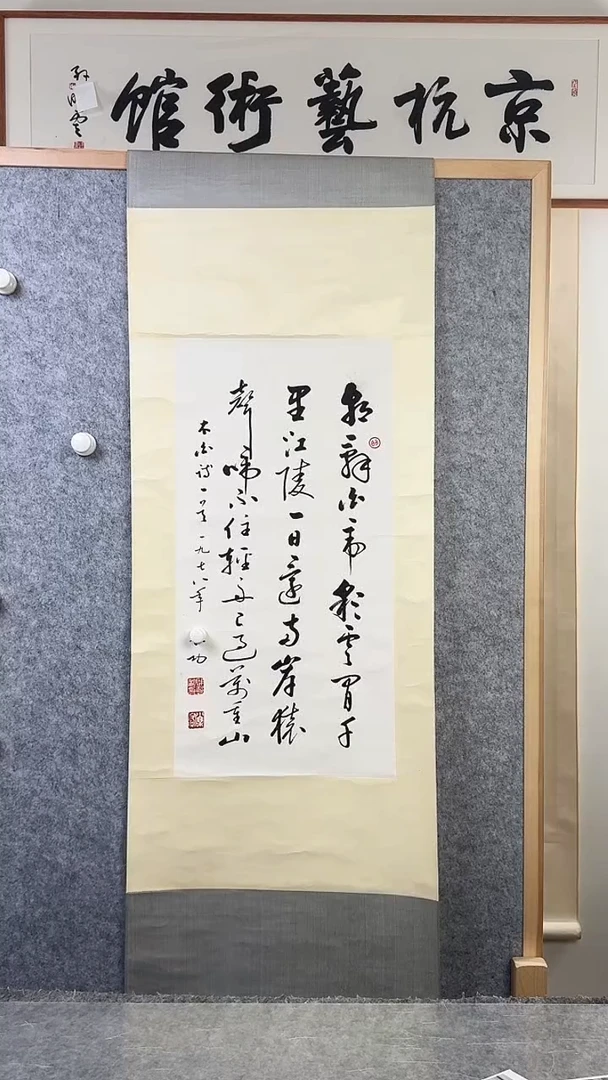 京杭藝術館
朝辭白帝彩雲間千
里江陵一日還兩岸猿
聲啼不住輕舟已過萬重山
太白诗一首 一九七八年 功